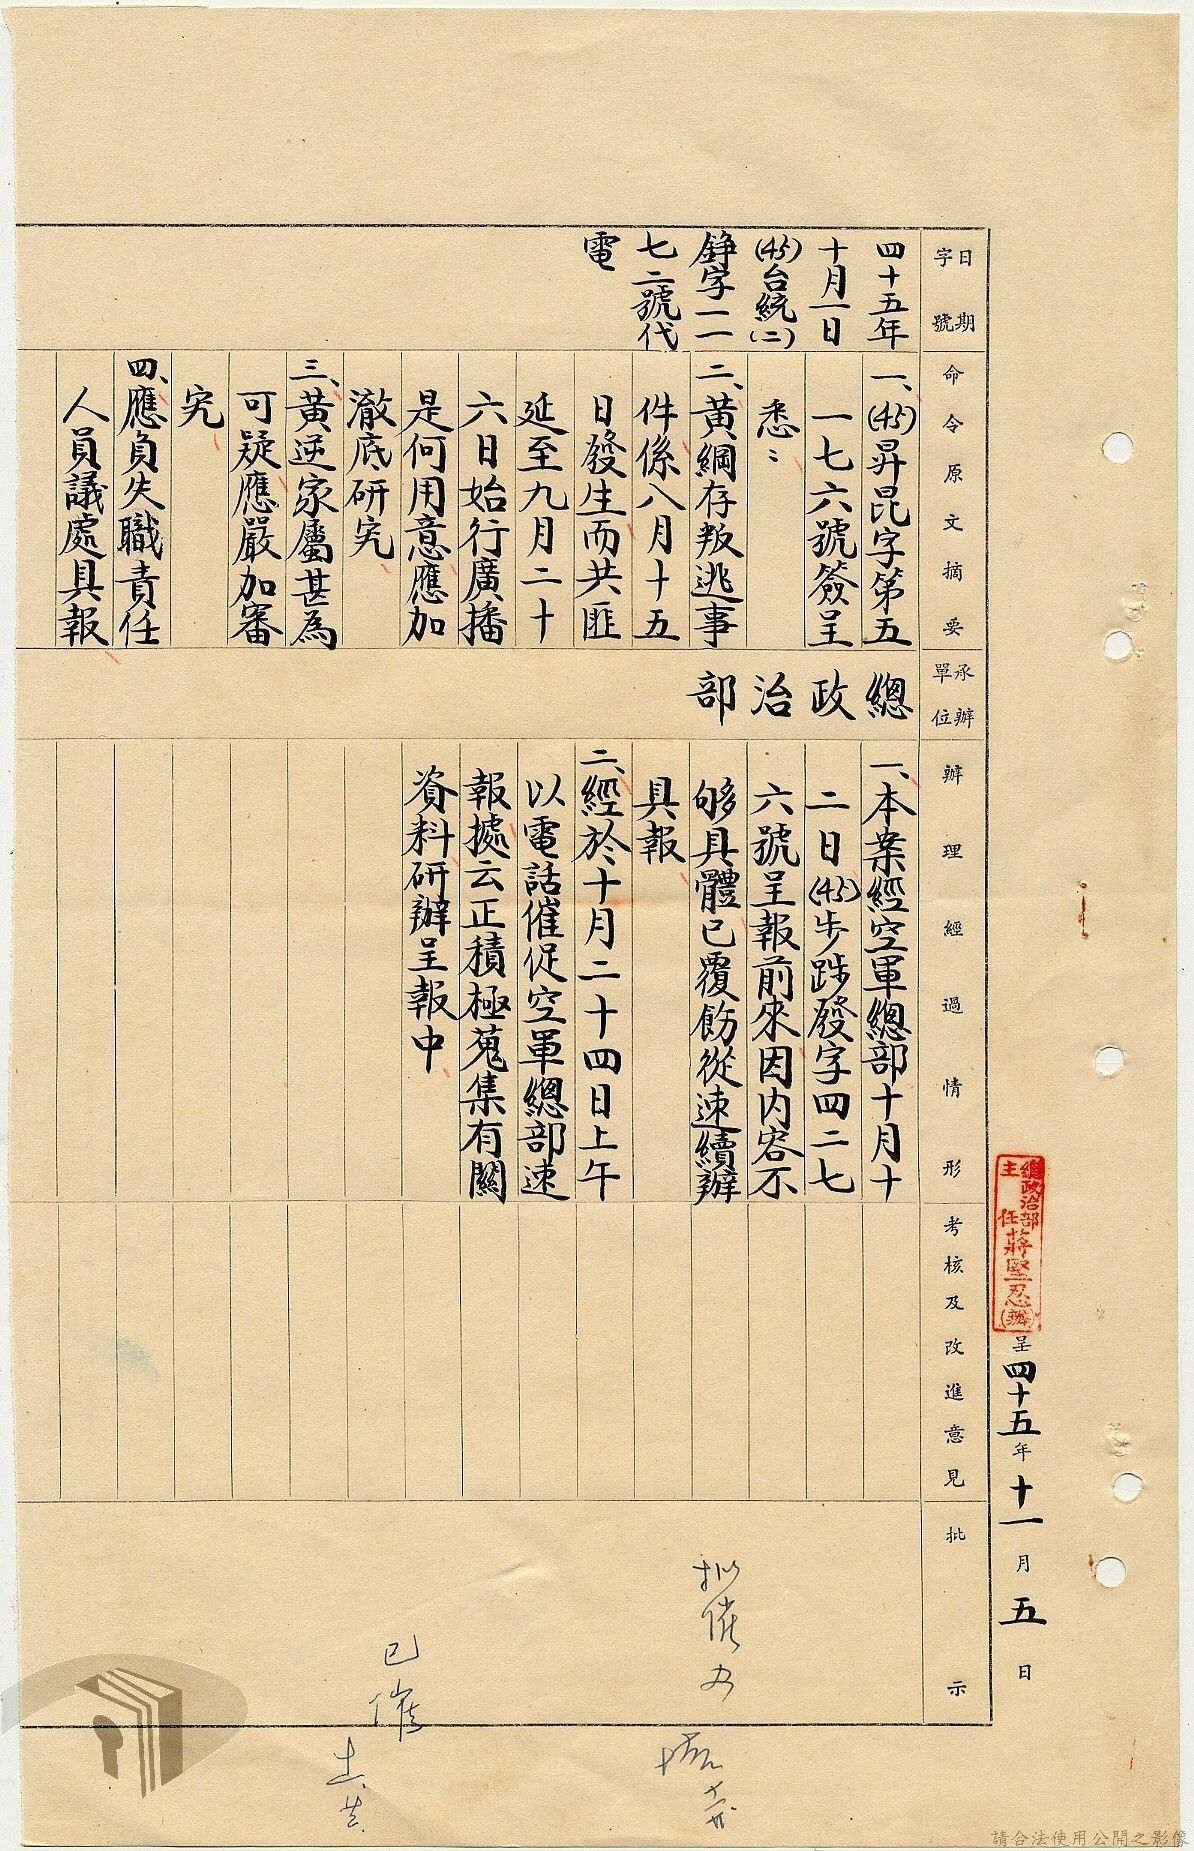 總政治部
主任蔣堅忍(辦)呈四十五年十一月五日
日期
字號
四十五年
十月一日
(45)台統(二)
錚字一一
七二號代
電
命令原文摘要
一、(45)昇昆字第五
一七六號簽呈
悉：
二、黃綱存叛逃事
件係八月十五
日發生而共匪
延至九月二十
六日始行廣播
是何用意應加
澈底研究
三、黃逆家屬甚為
可疑應嚴加審
究
四、應負失職責任
人員議處具報
承辦
單位
總政治部
辦理經過情形
一、本案經空軍總部十月十
二日(45)步跸發字四二七
六號呈報前來因內容不
够具體已覆飭從速續辦
具報
二、經於十月二十四日上午
以電話催促空軍總部速
報據云正積極蒐集有關
資料研辦呈報中
考核及改進意見
批示
拟催办
已催
請合法使用公開之影像